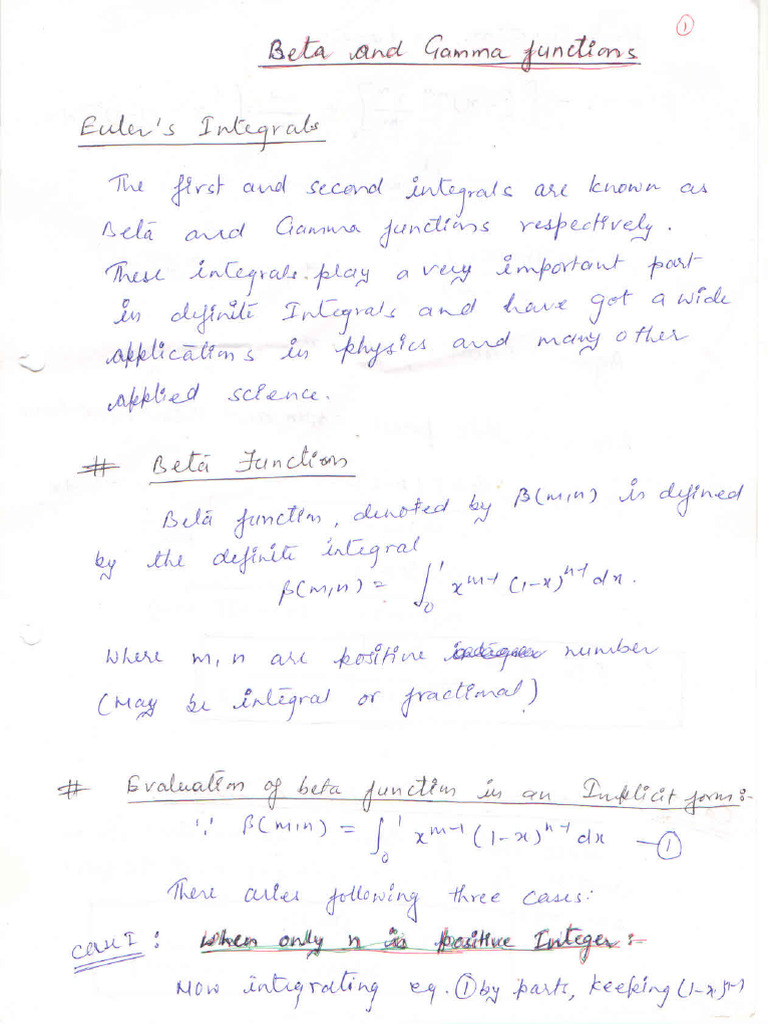 ①
Beta and Gamma functions
Euler's Integrals
The first and second integrals are known as
Beta and Gamma functions respectively.
These integrals play a very important part
in definite Integrals and have got a wide
applications in physics and many other
applied science.
# Beta Function
Beta function, denoted by β(m,n) is defined
by the definite integral
β(m,n) = ∫₀¹ x^{m-1} (1-x)^{n-1} dx.
Where m, n are positive number
(May be integral or fractional)
# Evaluation of beta function in an Implicit form:-
∵ β(m,n) = ∫₀¹ x^{m-1} (1-x)^{n-1} dx —①
There aries following three cases:
case I: When only n is positive Integer:-
Now integrating eq. ① by parts, keeping (1-x)^{n-1}